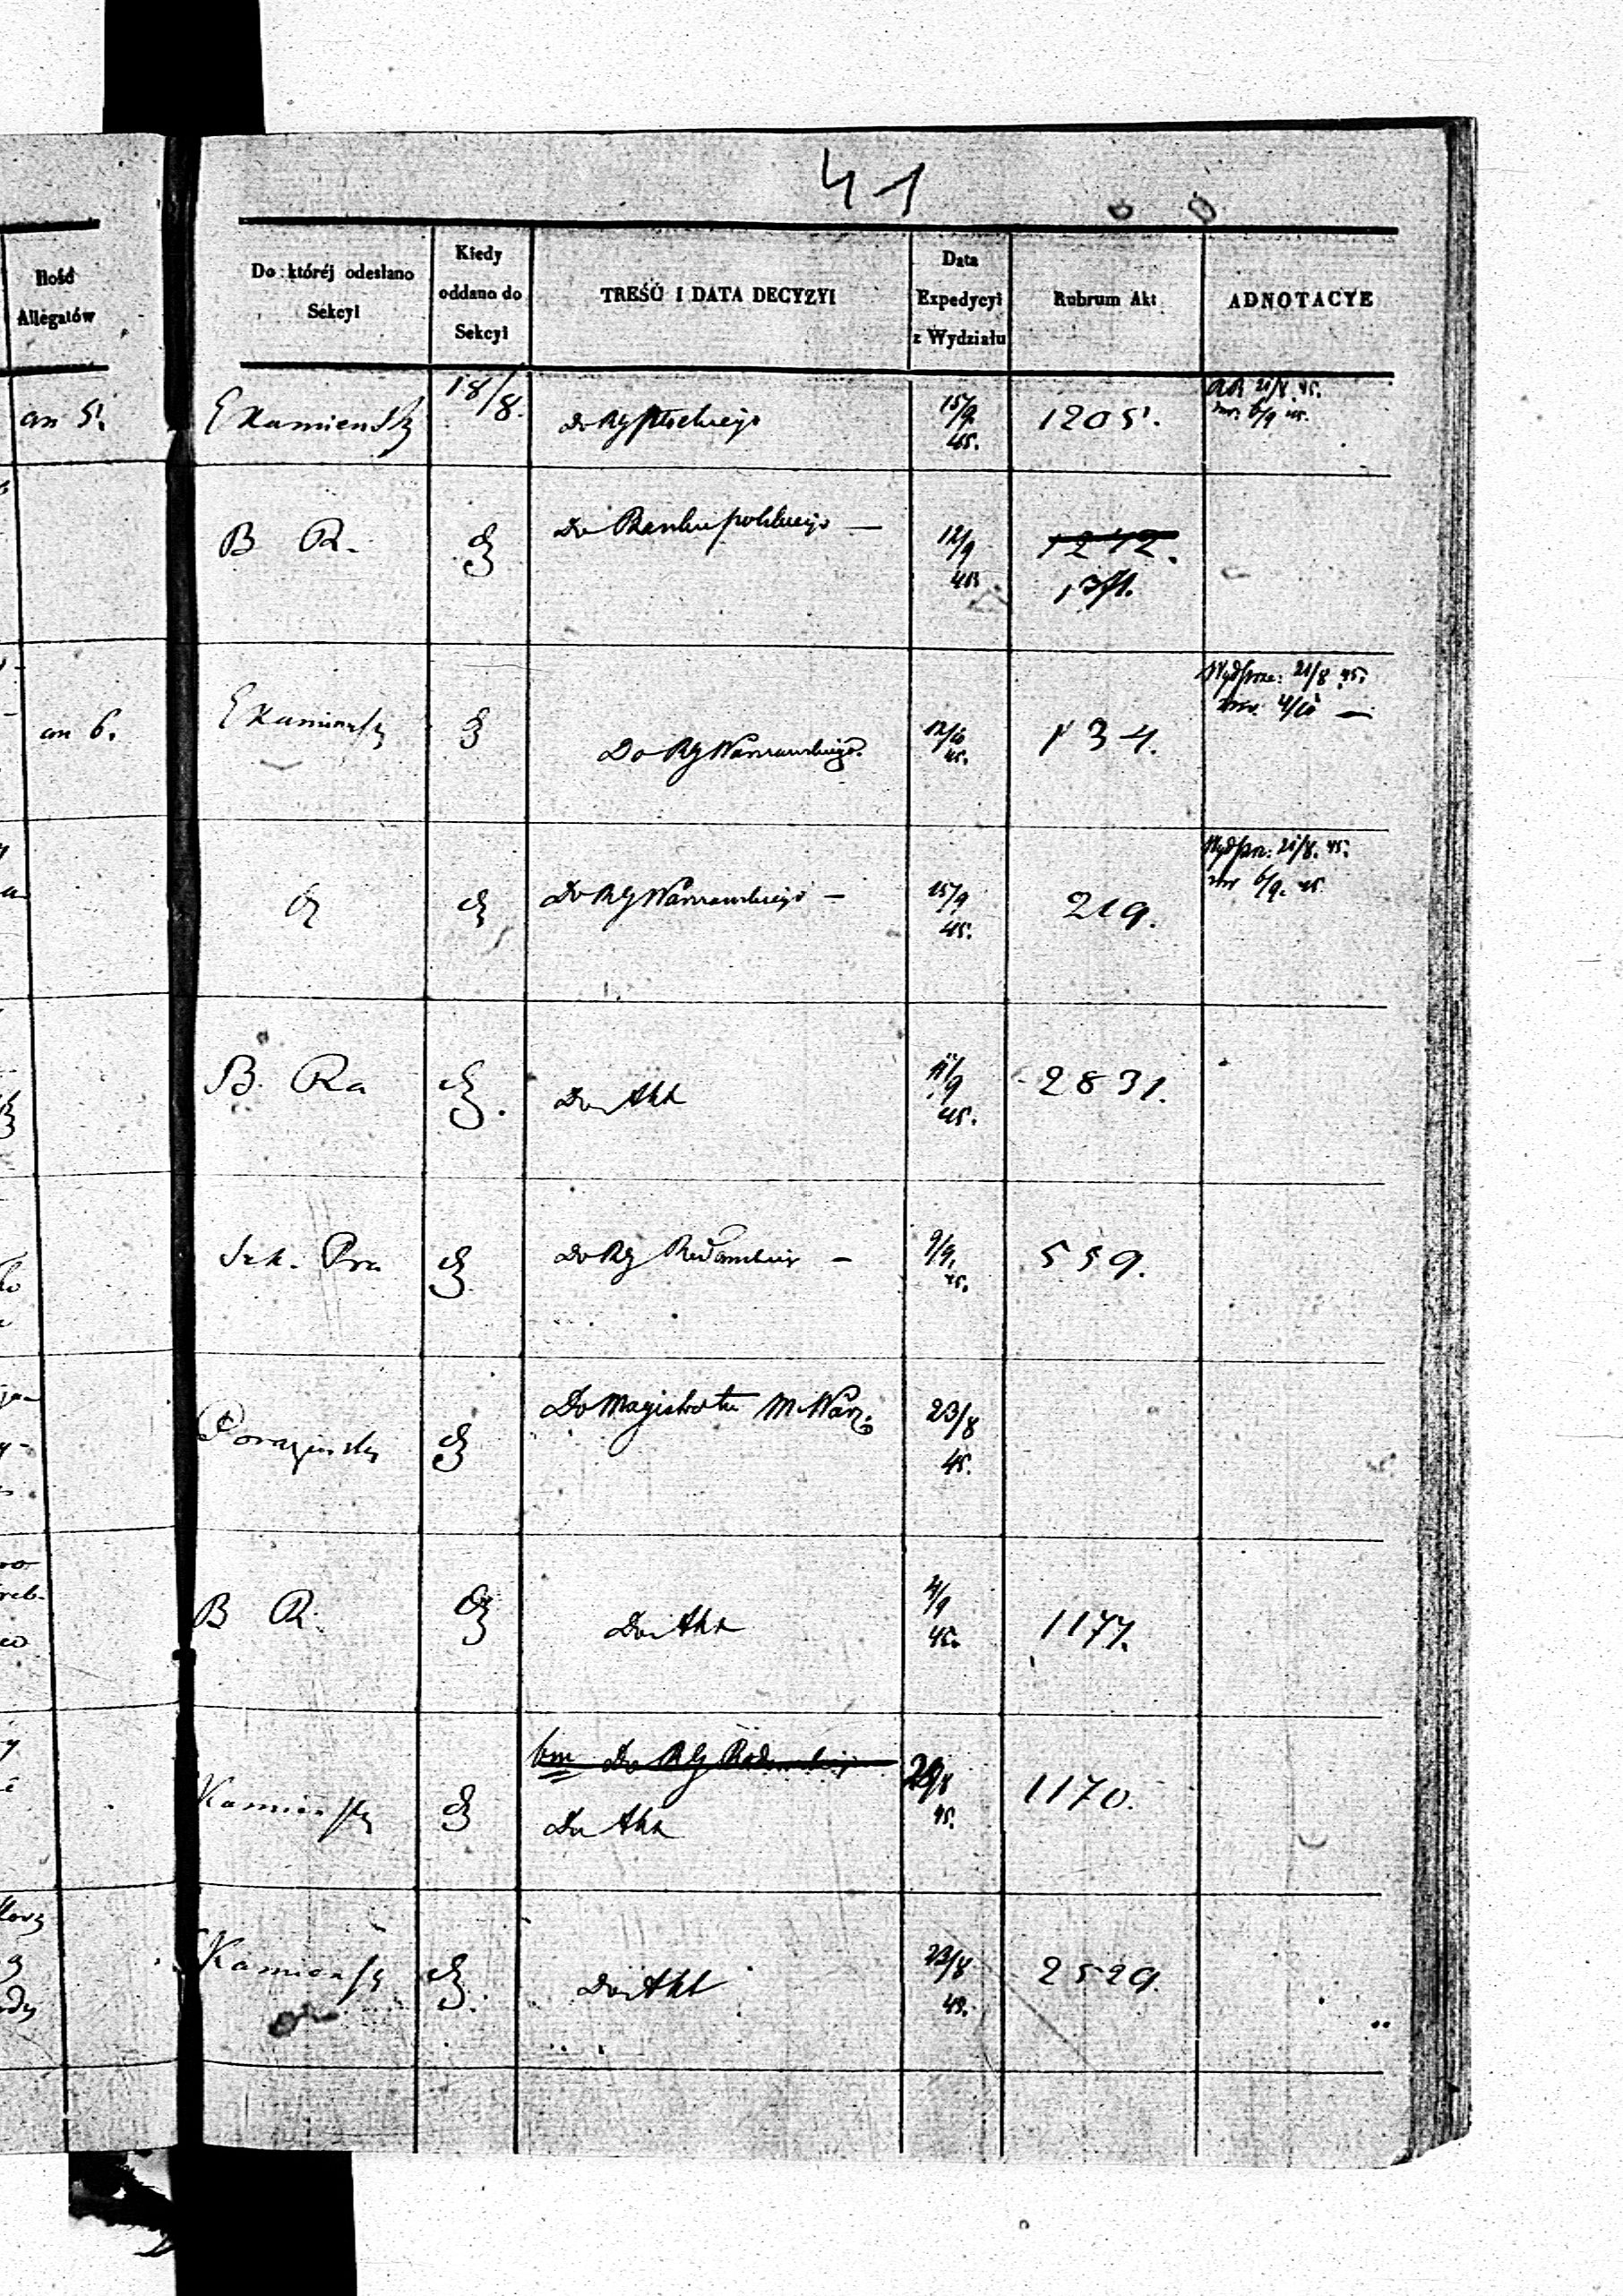 41
Ilość
Allegatów
Do któréj odesłano
Sekcyi
Kiedy
oddano do
Sekcyi
TREŚĆ I DATA DECYZYI
Data
Expedycyi
z Wydziału
Rubrum Akt
ADNOTACYE
an 5.
EKamieński
18/8.
Do RG Płockiego
15/9.
45.
1205.
21/8. 45.
6/9 45.
B R.
Do Banku polskiego —
12/9
45
1242.
1371.
an 6.
EKamieński
Do RG Warszawskiego.
12/10
45.
134.
21/8 45.
4/10 —
Do RG Warszawskiego —
15/9
45.
219.
21/8. 45.
6/9. 45
B. Ra
Do Akt
11/9
45.
2831.
Sek. Pra
Do RG Radomskiego —
9/9.
45.
559.
Do Magistratu M. Warz.
23/8
45.
B R.
Do Akt
4/9
45.
1177.
Kamieński
Do RG Radomskiego
Do Akt
29/8
45.
1170.
Kamieński
Do Akt
23/8
45.
2529.